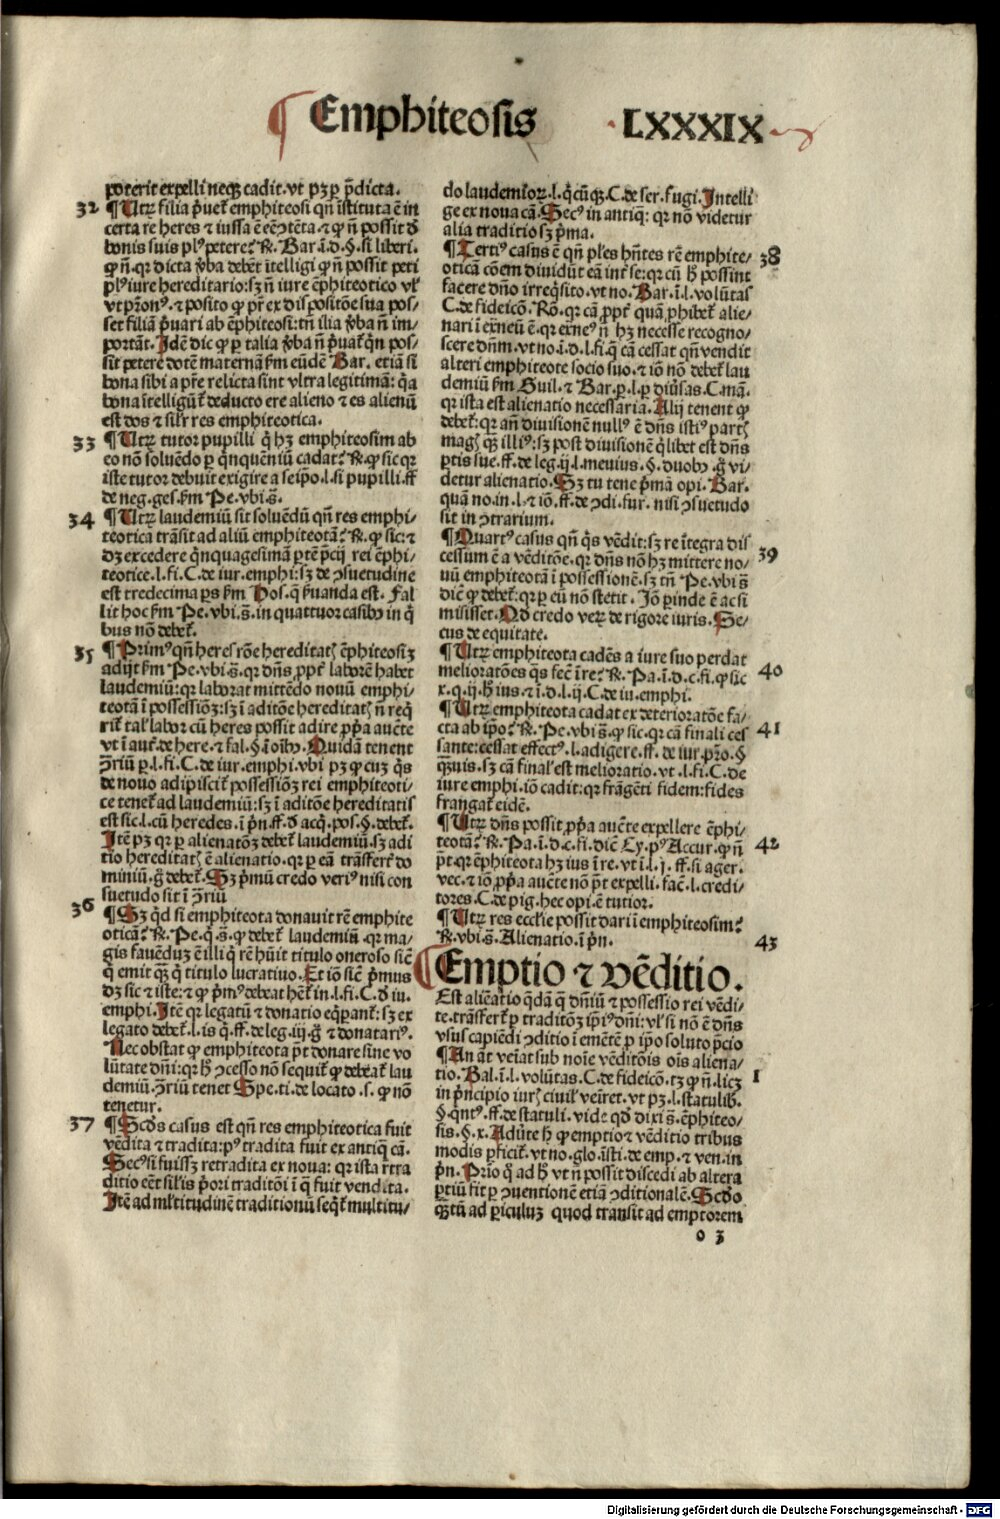 ¶ Emphiteosis
LXXXIX
poterit expelli neqꝫ cadit. vt pꝫ ꝑ p̄dicta.
32 ¶ Utꝝ filia p̄uet᷑ emphiteosi qn̄ īstituta ē in
certa re heres ⁊ iussa ē eē ɔ̄tēta. ⁊ ꝙ n̄ possit d̄
bonis suis plꝰ petere? R̄. Bar. ī. d. §. si liberi.
ꝙ n̄. qꝛ dicta v̄ba debēt ītelligi ꝙ n̄ possit peti
plꝰ iure hereditario: sꝫ n̄ iure ēphiteotico vl᷑
vt pr̄onꝰ. ⁊ posito ꝙ pr̄ ex dispositōe sua pos⸗
set filiā p̄uari ab ēphiteosi: tn̄ ilia v̄ba n̄ im⸗
portāt. Idē dic ꝙ ꝑ talia v̄ba n̄ p̄uat᷑ q̄n pos⸗
sit petere dotē maternā ẜm eūdē Bar. etiā si
bona sibi a pr̄e relicta sint vltra legitimā: q̄a
bona ītelligūt᷑ deducto ere alieno ⁊ es alienū
est dos ⁊ sil̄r res emphiteotica.
33 ¶ Utꝝ tutor pupilli q̄ hꝫ emphiteosim ab
eo nō soluēdo ꝑ q̄nquēniū cadat? R̄. ꝙ sic qꝛ
iste tutor debuit exigire a seip̄o. l. si pupilli. ff
de neg. ges. ẜm Pe. vbi. s̄.
34 ¶ Utꝝ laudemiū sit soluēdū qn̄ res emphi⸗
teotica trāsit ad aliū emphiteotā? R̄. ꝙ sic: ⁊
dꝫ excedere q̄nquagesimā ꝑtē p̄cij rei ēphi⸗
teotice. l. fi. C. de iur. emphi: sꝫ de ɔsuetudine
est tredecima ꝑs ẜm Hos. q̄ ẜuanda est. Fal
lit hoc ẜm Pe. vbi. s̄. in quattuor casibꝫ in q̄
bus nō debet᷑.
35 ¶ Primꝰ qn̄ heres rōe hereditatꝭ ēphiteosiꝫ
adijt ẜm Pe. vbi. s̄. qꝛ dn̄s ꝓpt᷑ laborē habet
laudemiū: qꝛ laborat mittēdo nouū emphi⸗
teotā ī possessiōꝫ: sꝫ ī aditōe hereditatꝭ n̄ req̄
rit᷑ tal᷑ labor cū heres possit adire ꝓp̄a auc̄te
vt ī aut̄. de here. ⁊ fal. §. ī oībꝫ. Quidā tenent
ɔ̄riū ꝑ. l. fi. C. de iur. emphi. vbi pꝫ ꝙ cuꝫ q̄s
de nouo adipiscit᷑ possessiōꝫ rei emphiteoti⸗
ce tenet᷑ ad laudemiū: sꝫ ī aditōe hereditatis
est sic. l. cū heredes. ī p̄n. ff. d̄ acq̄. pos. §. debet᷑.
Itē pꝫ qꝛ ꝑ alienatōꝫ debet᷑ laudemiū. sꝫ adi
tio hereditatꝭ ē alienatio. qꝛ ꝑ eā trāffert᷑ do
miniū. g̊ debet᷑. Sꝫ p̄mū credo veriꝰ nisi con
suetudo sit ī ɔ̄riū
36 ¶ Sꝫ q̄d si emphiteota donauit rē emphite
oticā? R̄. Pe. q̄. s̄. ꝙ debet᷑ laudemiū. qꝛ ma⸗
gis fauēduꝫ ē illi q̄ rē hūit titulo oneroso sic̄
q̄ emit qꝫ̄ q̄ titulo lucratiuo. Et iō sic̄ p̄mus
dꝫ sic ⁊ iste: ⁊ ꝙ p̄mꝰ debeat hēt᷑ in. l. fi. C. d̄ iu.
emphi. Itē qꝛ legatū ⁊ donatio eq̄ꝑant᷑: sꝫ ex
legato debet᷑. l. is q̄. ff. de leg. iij. g̊ ⁊ donatariꝰ.
Nec obstat ꝙ emphiteota pt̄ donare sine vo
lūtate dn̄i: qꝛ h̄ ɔcesso nō sequit᷑ ꝙ debeat᷑ lau
demiū. ɔ̄riū tenet Spe. ti. de locato. s. ꝙ nō
tenetur.
37 ¶ Sc̄ds casus est qn̄ res emphiteotica fuit
vēdita ⁊ tradita: pꝰ tradita fuit ex antiq̄ cā.
Secꝰ si fuissꝫ retradita ex noua: qꝛ ista rtra
ditio eēt sil̄is p̄ori traditōi ī q̄ fuit vendita.
Itē ad ml̄titudinē traditionū seq̄t᷑ multitu⸗
do laudemioꝝ. l. q̄cūqꝫ. C. de ser. fugi. Intelli
ge ex noua cā. Secꝰ in antiq̄: qꝛ nō videtur
alia traditio sꝫ p̄ma.
¶ Tertiꝰ casus ē qn̄ ples hn̄tes rē emphite⸗ 38
oticā cōem diuidūt eā int᷑ se: qꝛ cū h̄ possint
facere dn̄o irreq̄sito. vt no. Bar. ī. l. volūtas
C. de fideicō. Rō. qꝛ cā ꝓpt᷑ quā ꝓhibet᷑ alie⸗
nari ī exneū ē. qꝛ exneꝰ n̄ hꝫ necesse recogno⸗
scere dn̄m. vt no. ī. d. l. fi. q̄ cā cessat qn̄ vendit
alteri emphiteote socio suo. ⁊ iō nō debet᷑ lau
demiū ẜm Guil. ⁊ Bar. ꝑ. l. ꝑ diūsas. C. mā.
qꝛ ista est alienatio necessaria. Alij tenent ꝙ
debet᷑: qꝛ an̄ diuisionē nullꝰ ē dn̄s istiꝰ partꝭ
magꝭ qꝫ̄ illiꝰ: sꝫ post diuisionē q̄libet est dn̄s
ꝑtis sue. ff. de leg. ij. l. meuius. §. duobꝫ. g̊ vi⸗
detur alienatio. Sꝫ tu tene p̄mā opi. Bar.
quā no. in. l. ⁊ iō. ff. de ɔdi. fur. nisi ɔsuetudo
sit in ɔtrarium.
¶ Quartꝰ casus qn̄ q̄s vēdit: sꝫ re ītegra dis 39
cessum ē a vēditōe. qꝛ dn̄s nō hꝫ mittere no⸗
uū emphiteotā ī possessionē. sꝫ tn̄ Pe. vbi s̄
dic̄ ꝙ debet᷑: qꝛ ꝑ eū nō stetit. Iō ꝑinde ē ac si
misisset. Qd̄ credo veꝝ de rigore iuris. Se⸗
cus de equitate.
¶ Utꝝ emphiteota cadēs a iure suo perdat
melioratōes q̄s fec̄ ī re? R̄. Pa. ī. d. c. fi. ꝙ sic 40
x. q. ij. h̄ ius. ⁊ ī. d. l. ij. C. de iu. emphi.
¶ Utꝝ emphiteota cadat ex deterioratōe fa⸗
cta ab ip̄o? R̄. Pe. vbi. s̄. ꝙ sic. qꝛ cā finali ces 41
sante: cessat effectꝰ. l. adigere. ff. de iur. pr̄o. §
qꝫ̄uis. sꝫ cā final᷑ est melioratio. vt. l. fi. C. de
iure emphi. iō cadit: qꝛ frāgēti fidem: fides
frangat᷑ eidē.
¶ Utꝝ dn̄s possit ꝓp̄a auc̄te expellere ēphi⸗
teotā? R̄. Pa. ī. d. c. fi. dic̄ Cy. pꝰ Accur. ꝙ n̄ 42
pt̄. qꝛ ēphiteota hꝫ ius ī re. vt ī. l. j. ff. si ager.
vec. ⁊ iō ꝓp̄a auc̄te nō pt̄ expelli. fac̄. l. credi⸗
tores. C. de pig. hec opi. ē tutior.
¶ Utꝝ res eccl̄ie possit dari ī emphiteosim?
R̄. vbi. s̄. Alienatio. ī p̄n. 43
¶ Emptio ⁊ vēditio.
Est aliēatio q̄dā q̄ dn̄iū ⁊ possessio rei vēdi⸗
te. trāsfert᷑ ꝑ traditōꝫ ip̄iꝰ dn̄i: vl᷑ si nō ē dn̄s
vsus capiēdi ɔditio ī emētē ꝑ ip̄o soluto p̄cio
¶ An āt veīat sub noīe vēditōis oīs aliena⸗
tio. Bal. ī. l. volūtas. C. de fideicō. tꝫ ꝙ n̄. licꝫ 1
in p̄ncipio iurꝭ ciuil᷑ veīret. vt pꝫ. l. statulib.
§. q̄ntꝰ. ff. de statuli. vide qd̄ dixi s̄. ēphiteo⸗
sis. §. x. Aduͤte h̄ ꝙ emptio ⁊ vēditio tribus
modis ꝑficit᷑. vt no. glo. īsti. de emp. ⁊ ven. in
p̄n. Prīo q̄ ad h̄ vt n̄ possit discedi ab altera
ꝑtiū fit ꝑ ɔuentionē etiā ɔditionalē. Sc̄do
qꝫ̄tū ad ꝑiculuꝫ quod transit ad emptorem
o 3
Digitalisierung gefördert durch die Deutsche Forschungsgemeinschaft - DFG